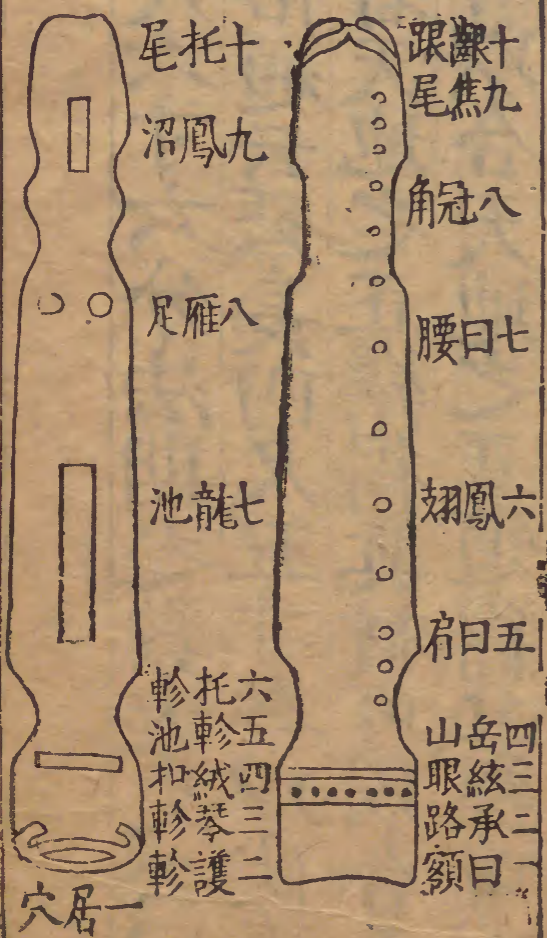 十齦跟
九焦尾
八冠角
七曰腰
六鳳翅
五曰肩
四岳山
三絃眼
二承路
一曰額
十托尾
九鳳沼
八雁足
七龍池
六托軫
五軫池
四絨扣
三琴軫
二護軫
一居穴